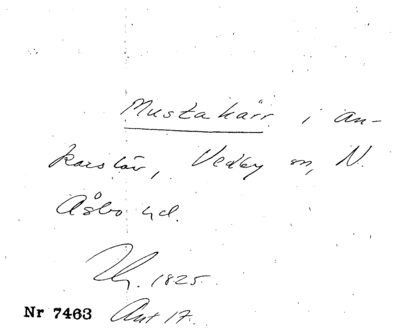 Mustakärr i An-
karslöv, Vedby sn, N.
Åsbo hd.
Uy. 1825.
Nr 7463 Akt 17.